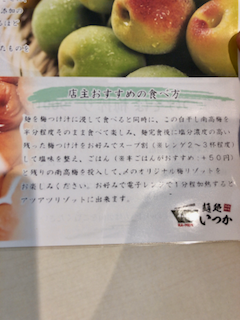 店主おすすめの食べ方
麺を梅つけ汁に浸して食べると同時に、この白干し南高梅を
半分程度そのまま食べて楽しみ、麺完食後に塩分濃度の高い
残った梅つけ汁をお好みでスープ割（※レンゲ2〜3杯程度）
して塩味を整え、ごはん（※半ごはんがおすすめ：+50円）
と残りの南高梅を投入して、〆のオリジナル梅リゾットを
お楽しみください。お好みで電子レンジで1分程加熱すると
アツアツリゾットに出来ます。
麺処
いつか